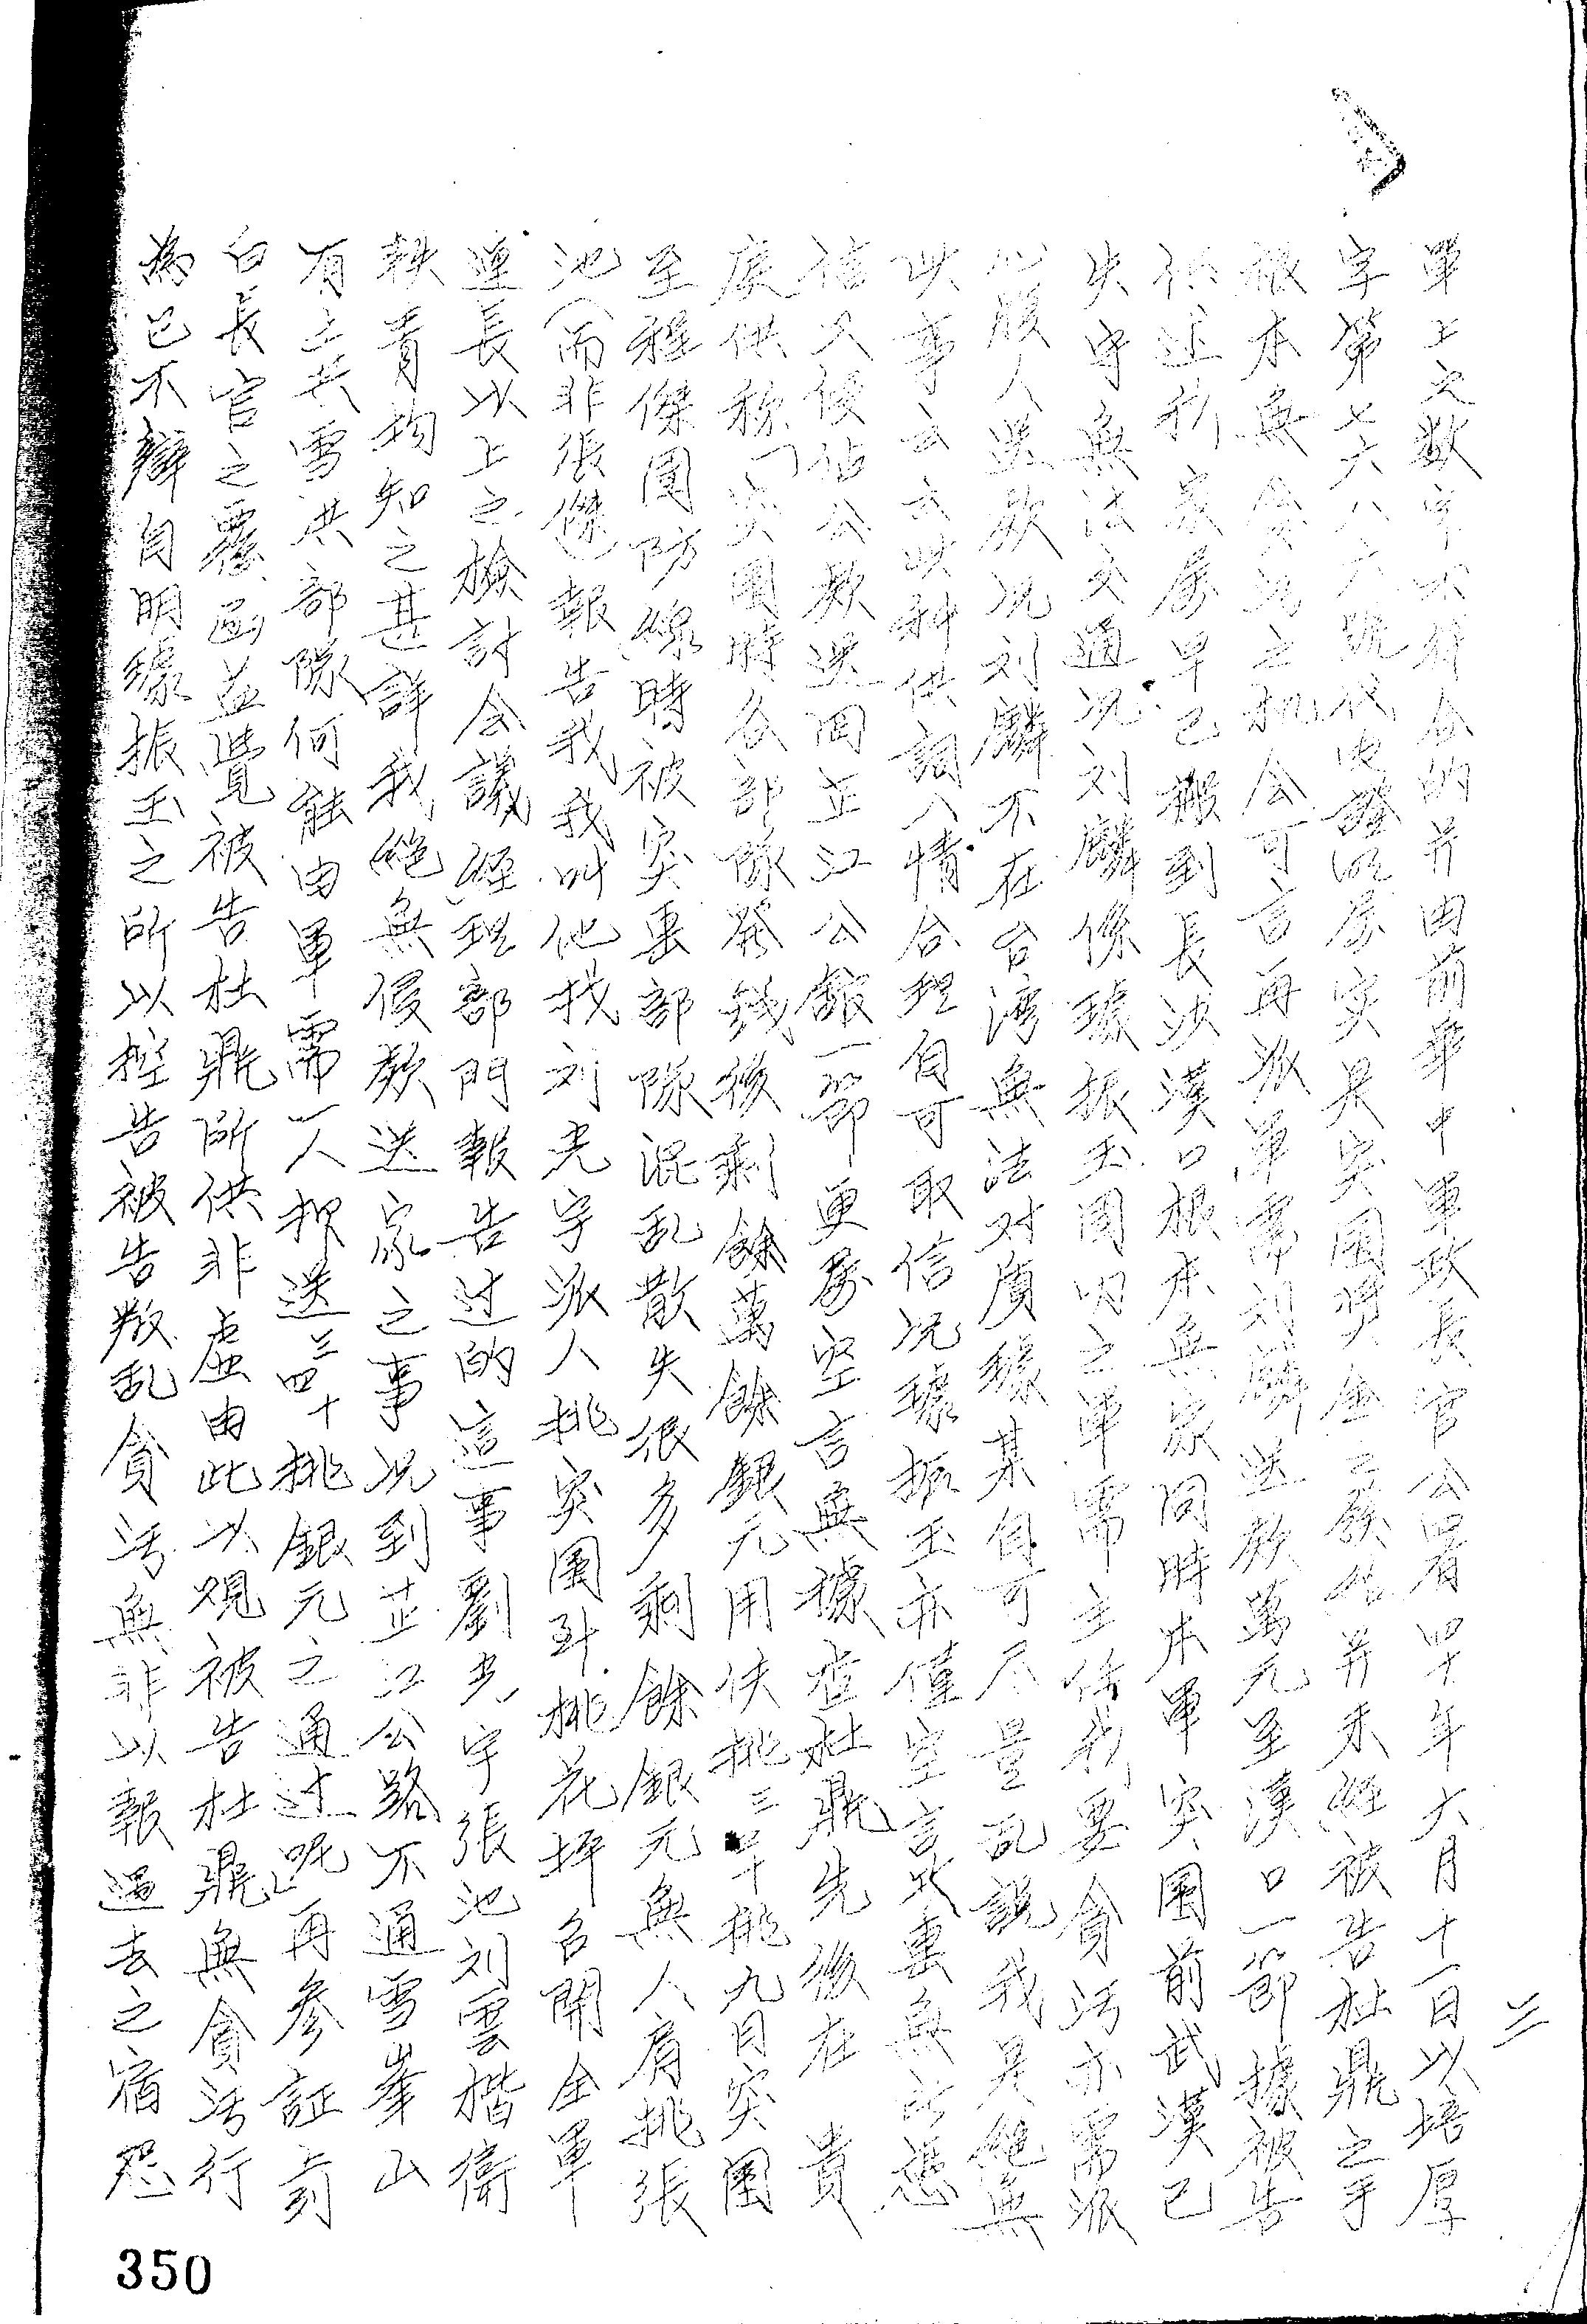 三
單上之數字不符合的并由前華中軍政長官公署四十年六月十一日以培厚
字第七六八六號代電證明屬實果突圍獎金二廢佑并未經被告杜鼎之手
根本無貪污之机会可言再派軍需刘麟送款萬元至漢口一節據被告
供述我家屬早已搬到長沙漢口根本無家同時本軍突圍前武漢已
失守無法交通况刘麟係據振玉圈內之軍需主任我要貪污亦需派
心腹人送款况刘麟不在台湾無法对质缘某自可尽量乱說我是絕無
此事云云此种供詞入情合理自可取信况據振玉亦僅空言此重無所憑
信又侵佔公款送回芷江公舘一節更屬空言無據查杜鼎先後在 貴
庭供称「突圍時各部隊發錢後剩餘萬餘銀元用伕挑三四十挑九月突圍
至程傑圍防線時被突重部隊混乱散失很多剩餘銀元無人肩挑張
池(而非張傑)報告我我叫他找刘光宇派人挑突圍到桃花坪召開全軍
連長以上之檢討会議經理部門報告过的這事劉光宇張池刘雲楷衛
軼青均知之甚詳我絕無侵款送家之事况到芷江公路不通雪峯山
有土共雪洪部隊何能由軍需一人押送三四十挑銀元之通过呢」再參証卣刻
白長官之覆函益覺被告杜鼎所供非虛由此以观被告杜鼎無貪污行
為已不辯自明缘振玉之所以控告被告叛乱貪污無非以報過去之宿怨
350